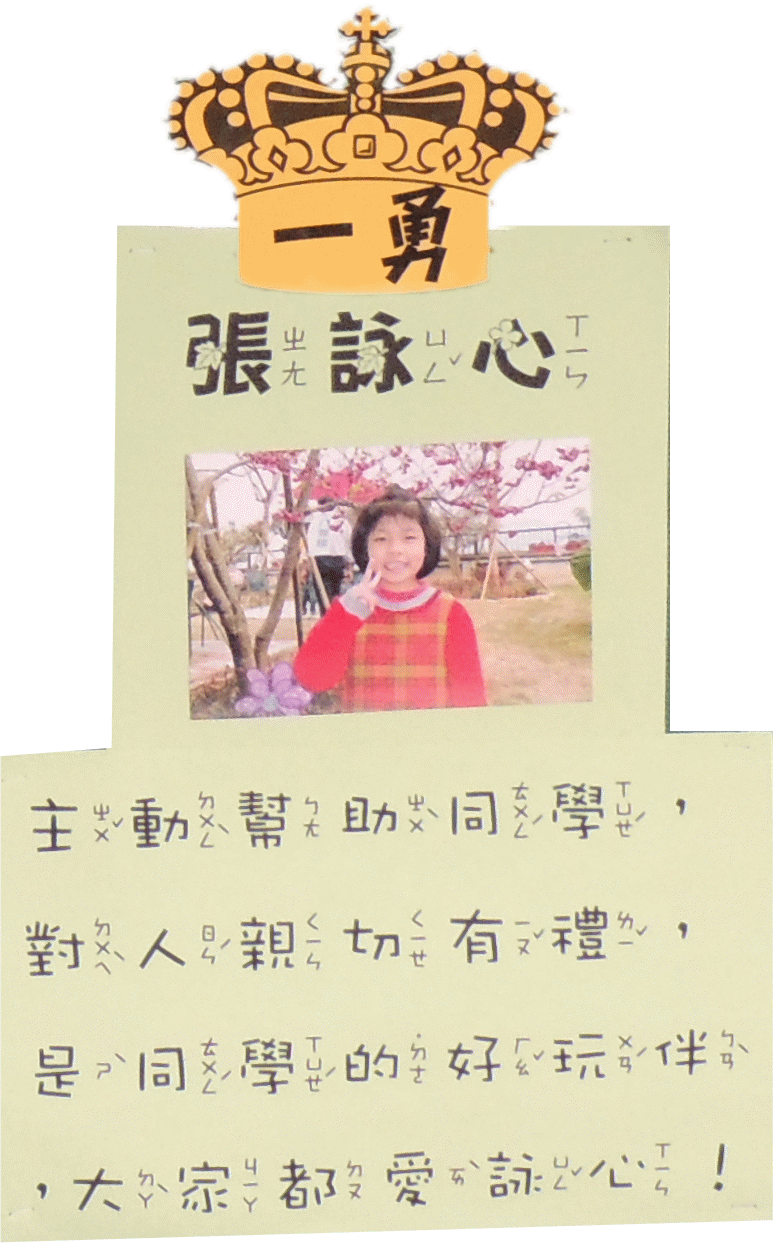 一勇
張ㄓㄤ詠ㄩㄥˇ心ㄒㄧㄣ
主ㄓㄨˇ動ㄉㄨㄥˋ幫ㄅㄤ助ㄓㄨˋ同ㄊㄨㄥˊ學ㄒㄩㄝˊ，
對ㄉㄨㄟˋ人ㄖㄣˊ親ㄑㄧㄣ切ㄑㄧㄝ有ㄧㄡˇ禮ㄌㄧˇ，
是ㄕˋ同ㄊㄨㄥˊ學ㄒㄩㄝˊ的˙ㄉㄜ好ㄏㄠˇ玩ㄨㄢˊ伴ㄅㄢˋ
，大ㄉㄚˋ家ㄐㄧㄚ都ㄉㄡ愛ㄞˋ詠ㄩㄥˇ心ㄒㄧㄣ！